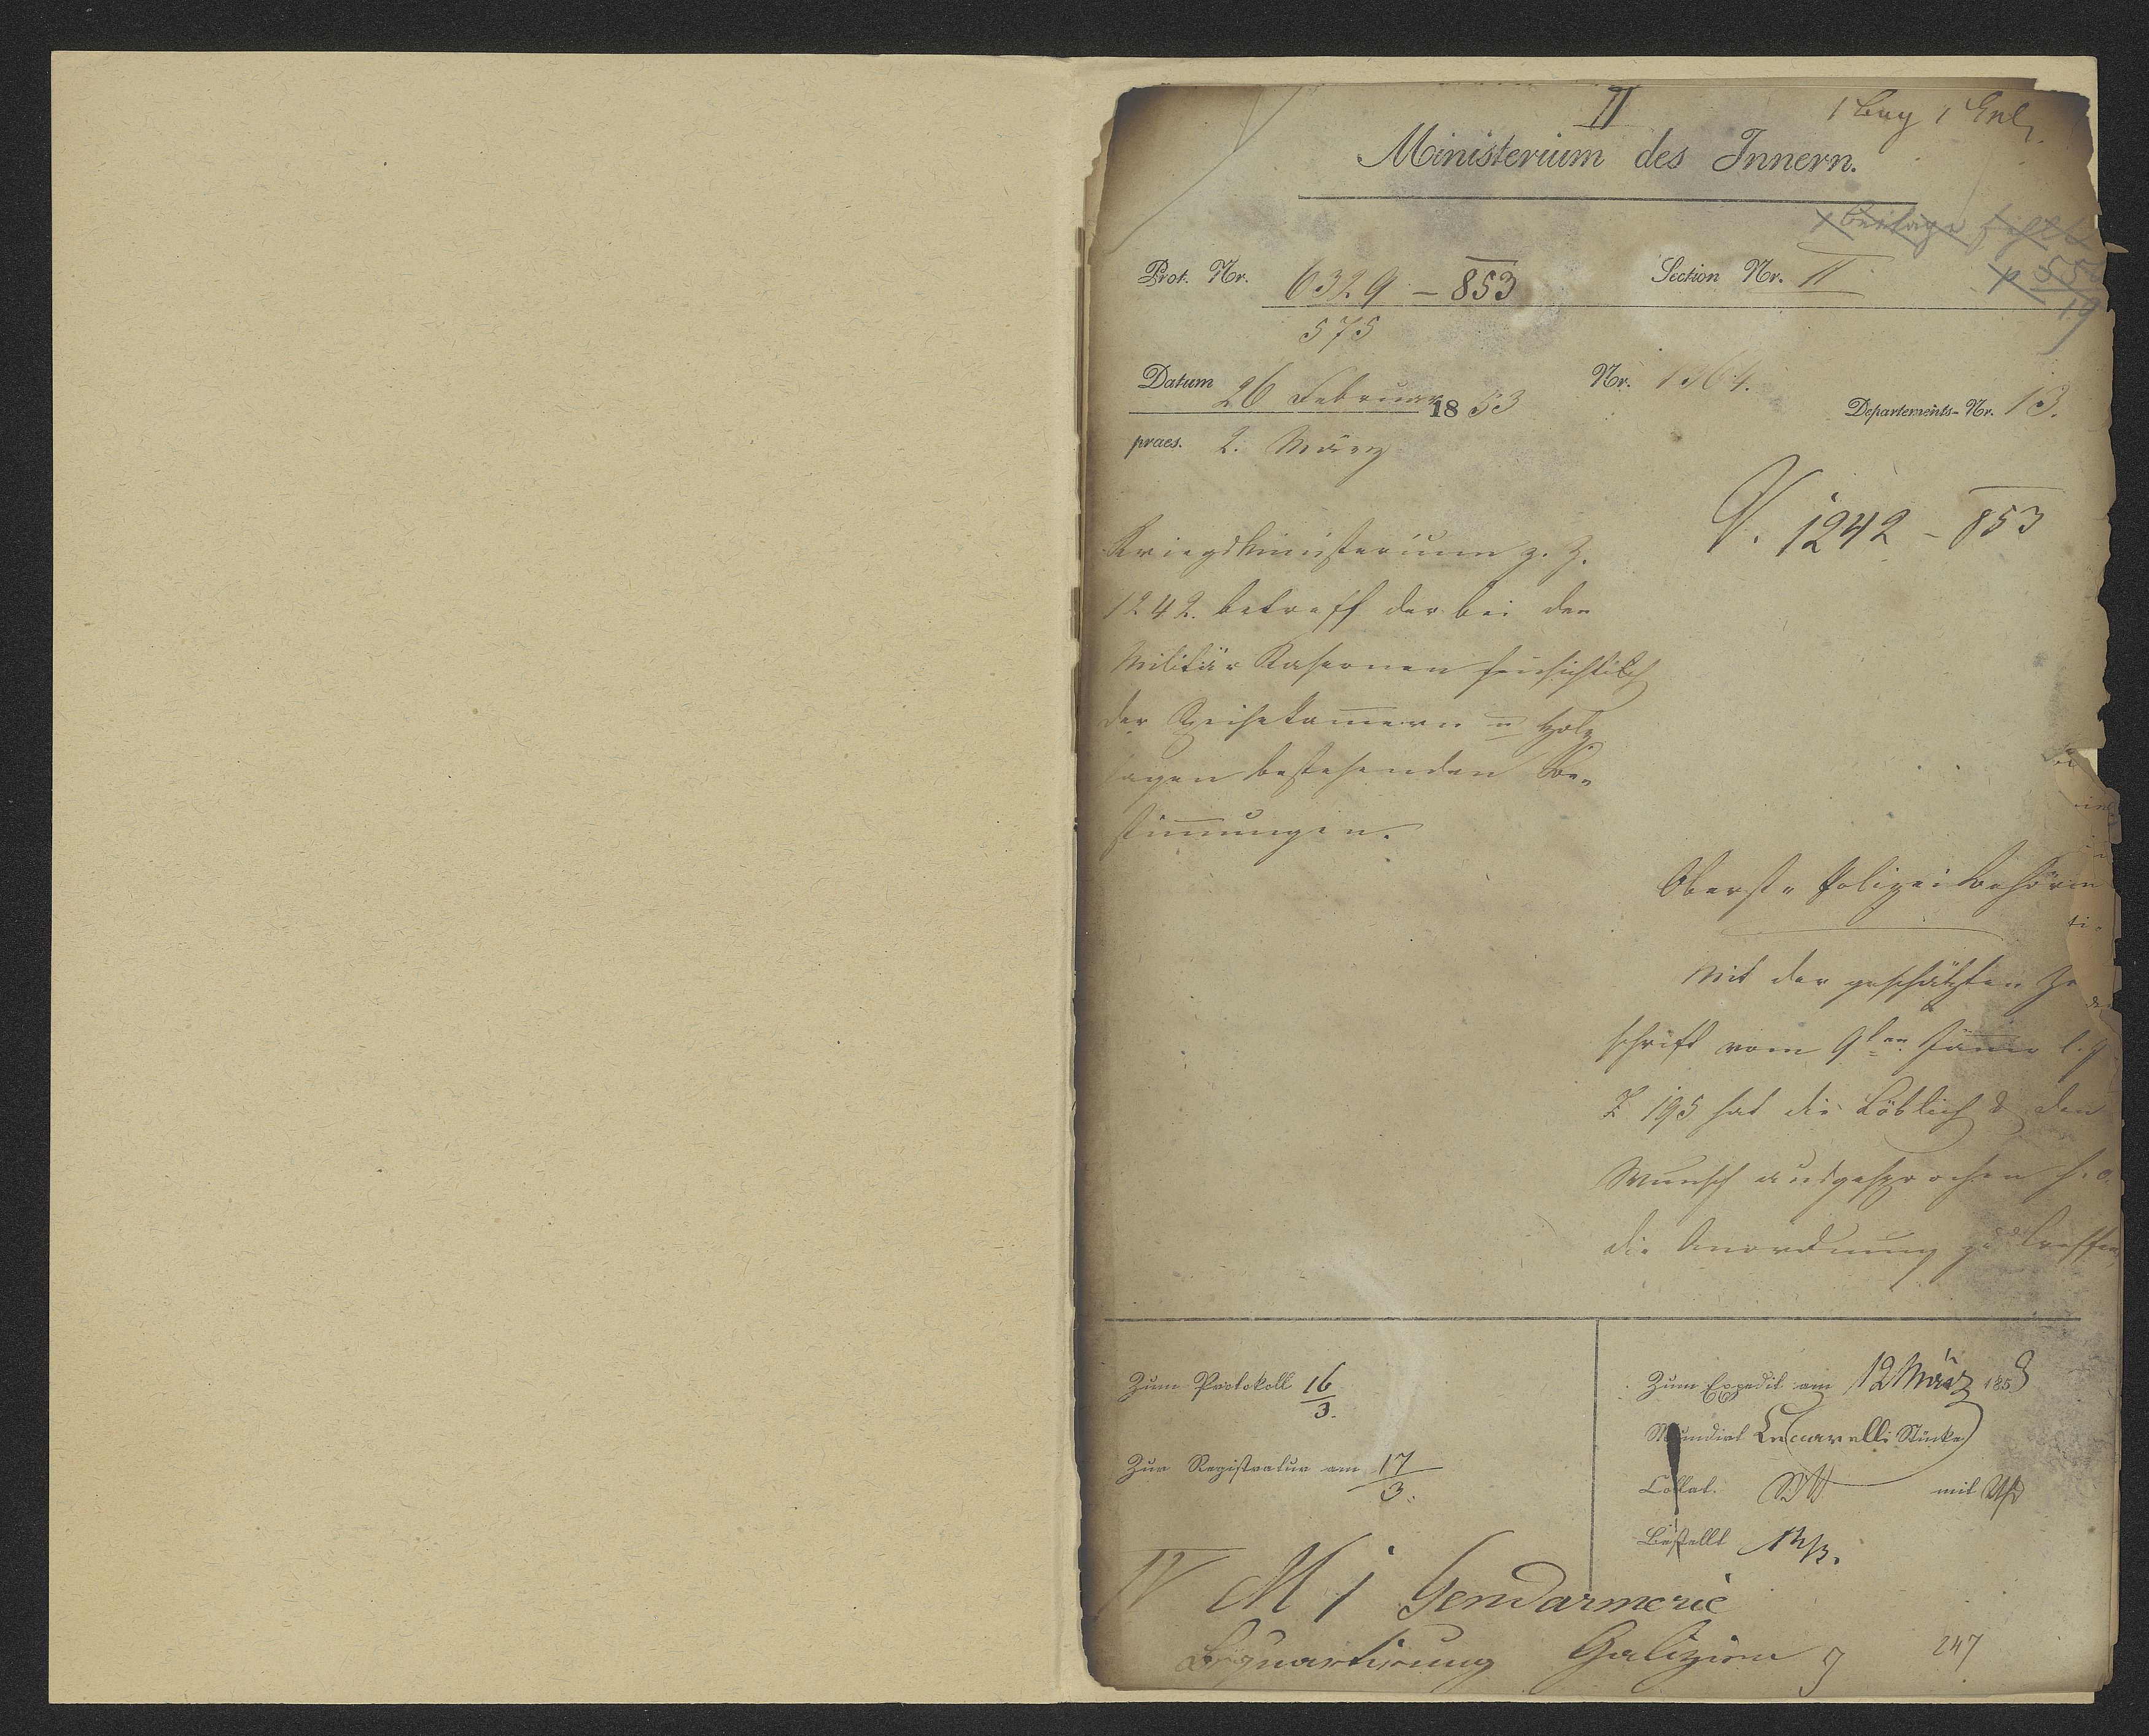 II
1 Beig 1 Enl.
Ministerium des Innern.
1 Beilage fehlt
Prot. Nr. 6329 - 853
575
Section Nr. II
19
Datum 26 Februar 1853
Nr. 1364.
Departements-Nr. 13.
praes. 2. März
V. 1242 - 853
Kriegsministerium z. Z.
1242. betreff der bei den
Militär Kasernen hinsichtlich
der Speisekammern u Holz
lagen bestehenden Be-
stimmungen.
Oberste Polizei Behörde
Mit der geschätzten Zu
schrift vom 9ten Jänner l. J
Z 195 hat die Löbliche den
Wunsch ausgesprochen h. o.
die Anordnung zu treffen
Zum Protokoll 16/3.
Zur Registratur am 17/3.
Zum Expedit am 12 März 1853
Mundirt
Collat. mit
Bestellt
IV M i Gendarmerie
Bequartirung Galizien 9
247